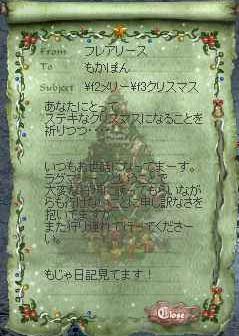 From フレアリース
To もかぽん
Subject ¥f2メリー¥f3クリスマス
あなたにとって
ステキなクリスマスになることを
祈りつつ・・・
いつもお世話になってまーす。
ラグマ
大変な
らも行けないことに申し訳なさを
抱いてますが
また行り連れて行ってくださー
い。
もじゃ日記見てます！
Close